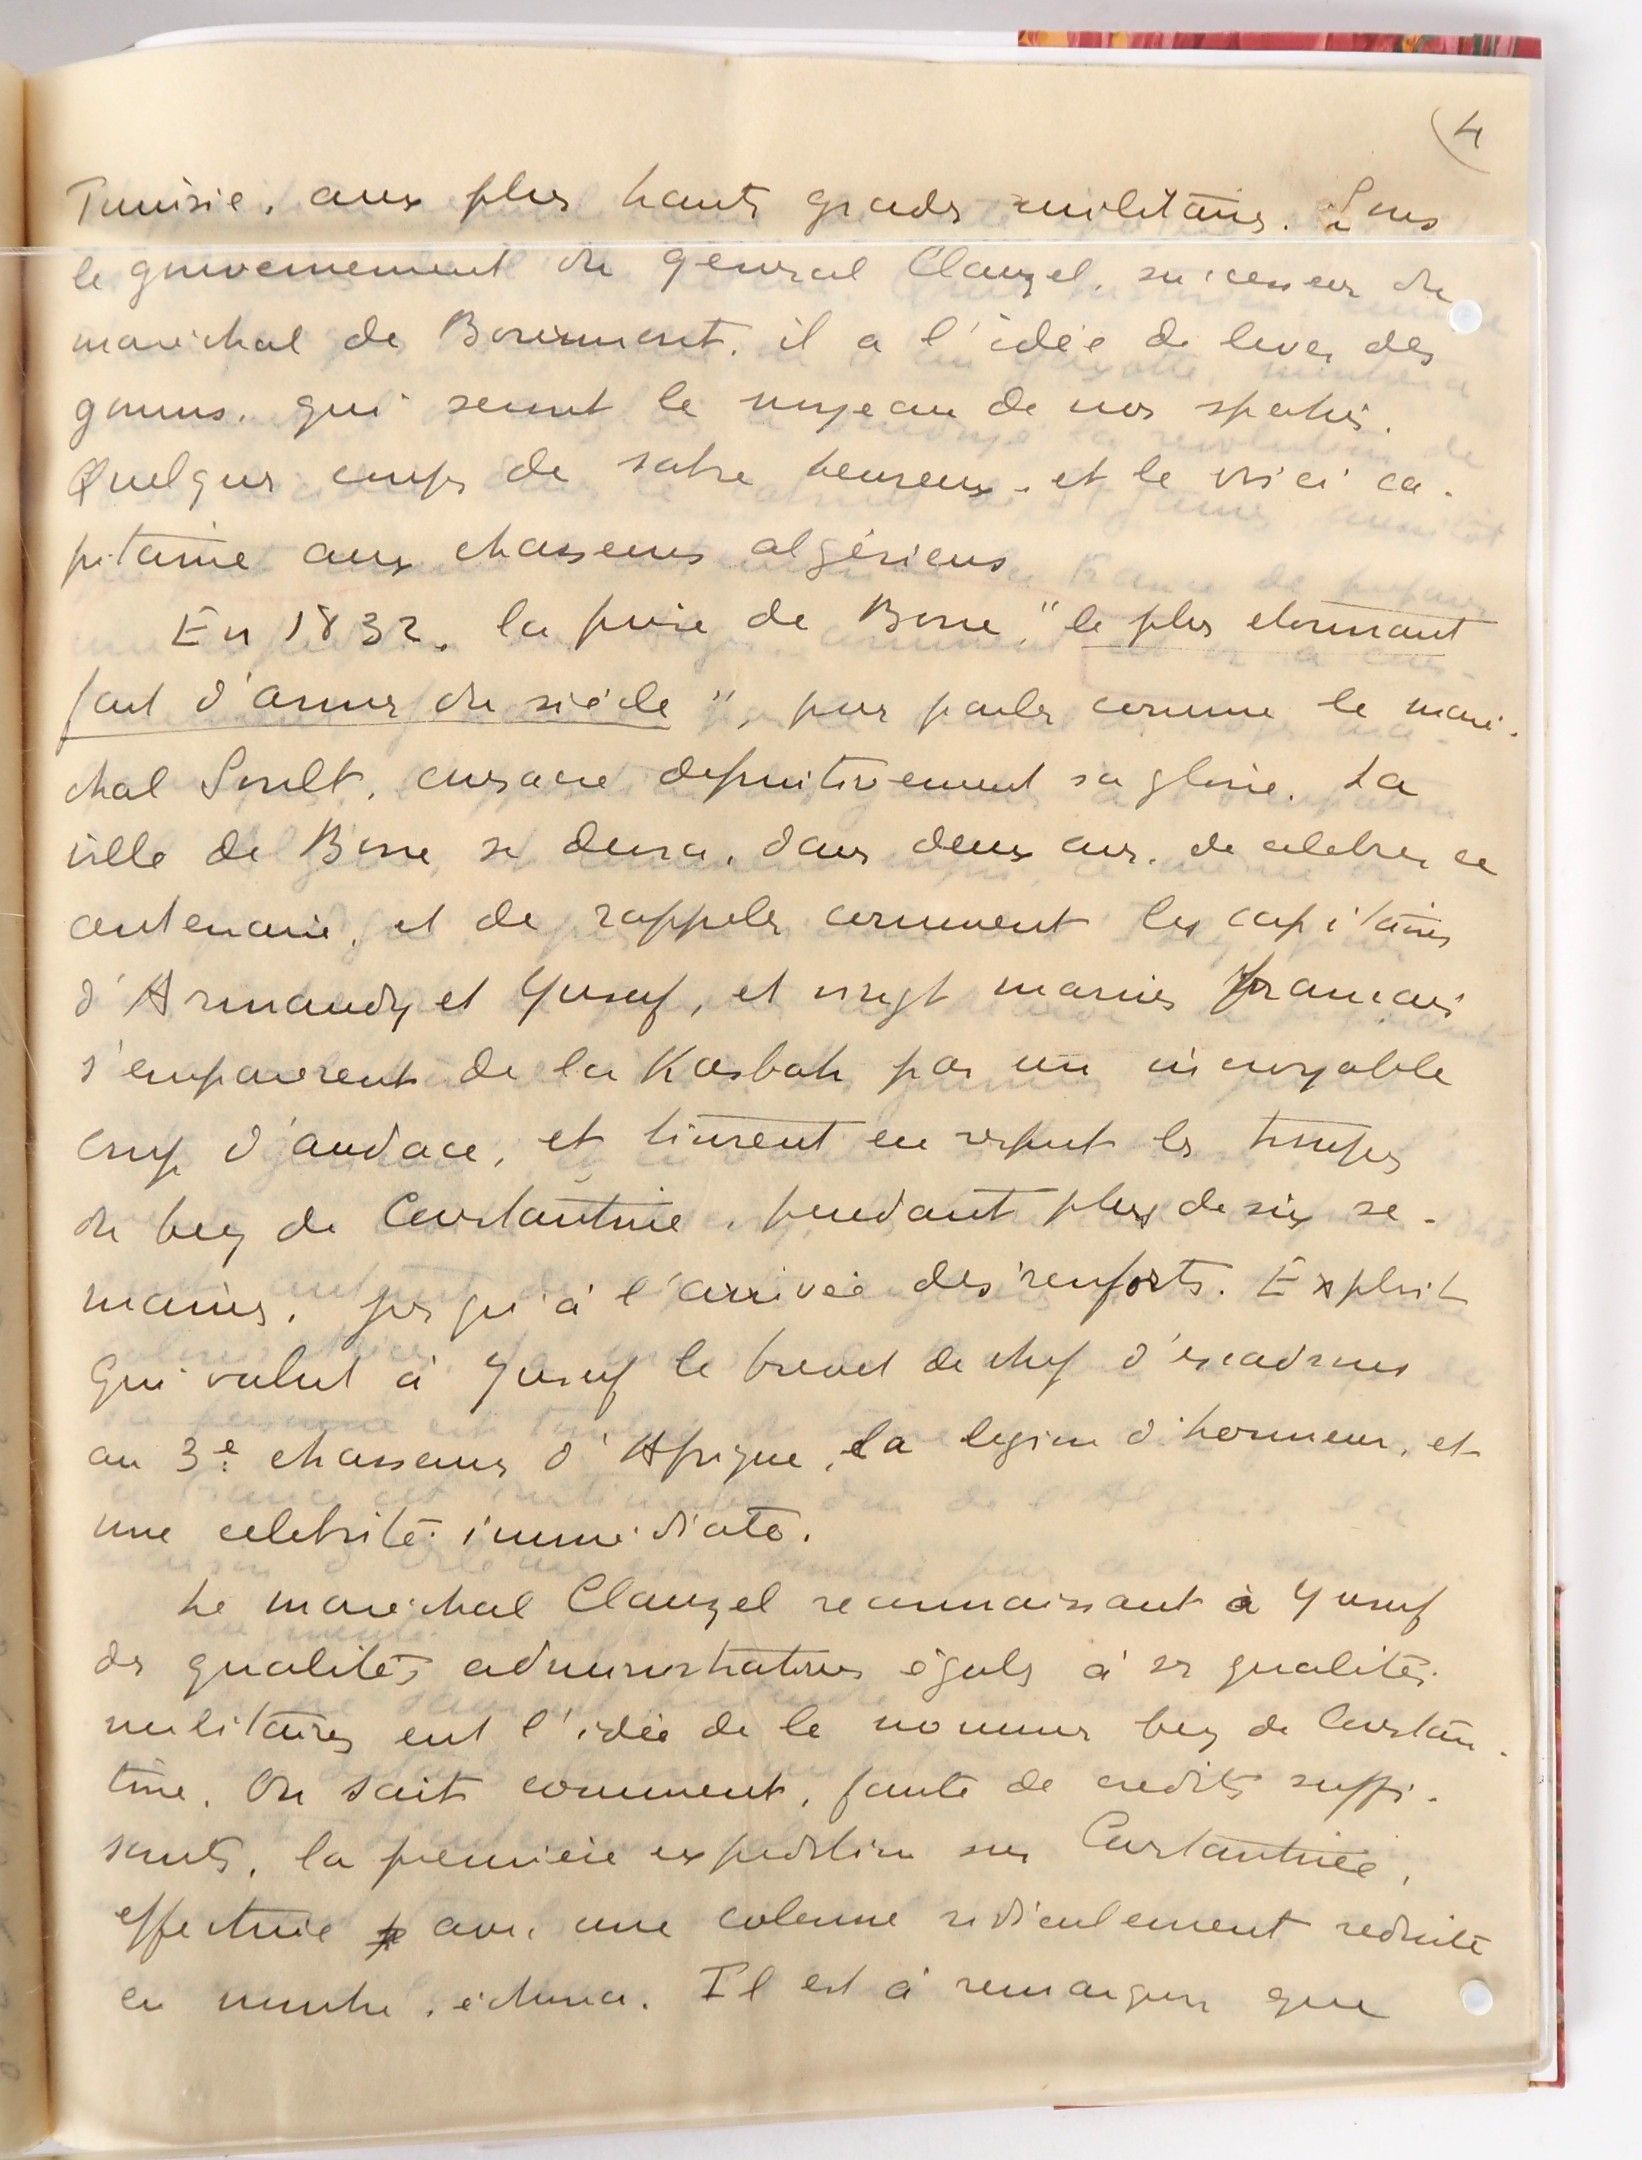 4
Tunisie, aux plus hauts grades militaires. Sous
le gouvernement du général Clauzel, successeur du
maréchal de Bourmont, il a l'idée de lever des
goums, qui seront le noyau de nos spahis.
Quelques coups de sabre heureux, et le voici ca-
pitaine aux chasseurs algériens
En 1832, la prise de Bone, "le plus étonnant
fait d'armes du siècle", pour parler comme le maré-
chal Soult, consacre définitivement sa gloire. La
ville de Bone se devra, dans deux ans, de célébrer ce
centenaire, et de rappeler comment les capitaines
d'Armandy et Yusuf, et vingt marins français
s'emparèrent de la Kasbah par un incroyable
coup d'audace, et tinrent en respect les troupes
du bey de Constantine, pendant plus de six se-
maines, jusqu'à l'arrivée des renforts. Exploit
qui valut à Yusuf le brevet de chef d'escadrons
au 3e chasseurs d'Afrique, la légion d'honneur, et
une célébrité immédiate.
Le maréchal Clauzel reconnaissant à Yusuf
des qualités administratives égales à ses qualités
militaires eut l'idée de le nommer bey de Constan-
tine. On sait comment, faute de crédits suffi-
sants, la première expédition sur Constantine,
effectuée avec une colonne ridiculement réduite
en nombre, échoua. Il est à remarquer que